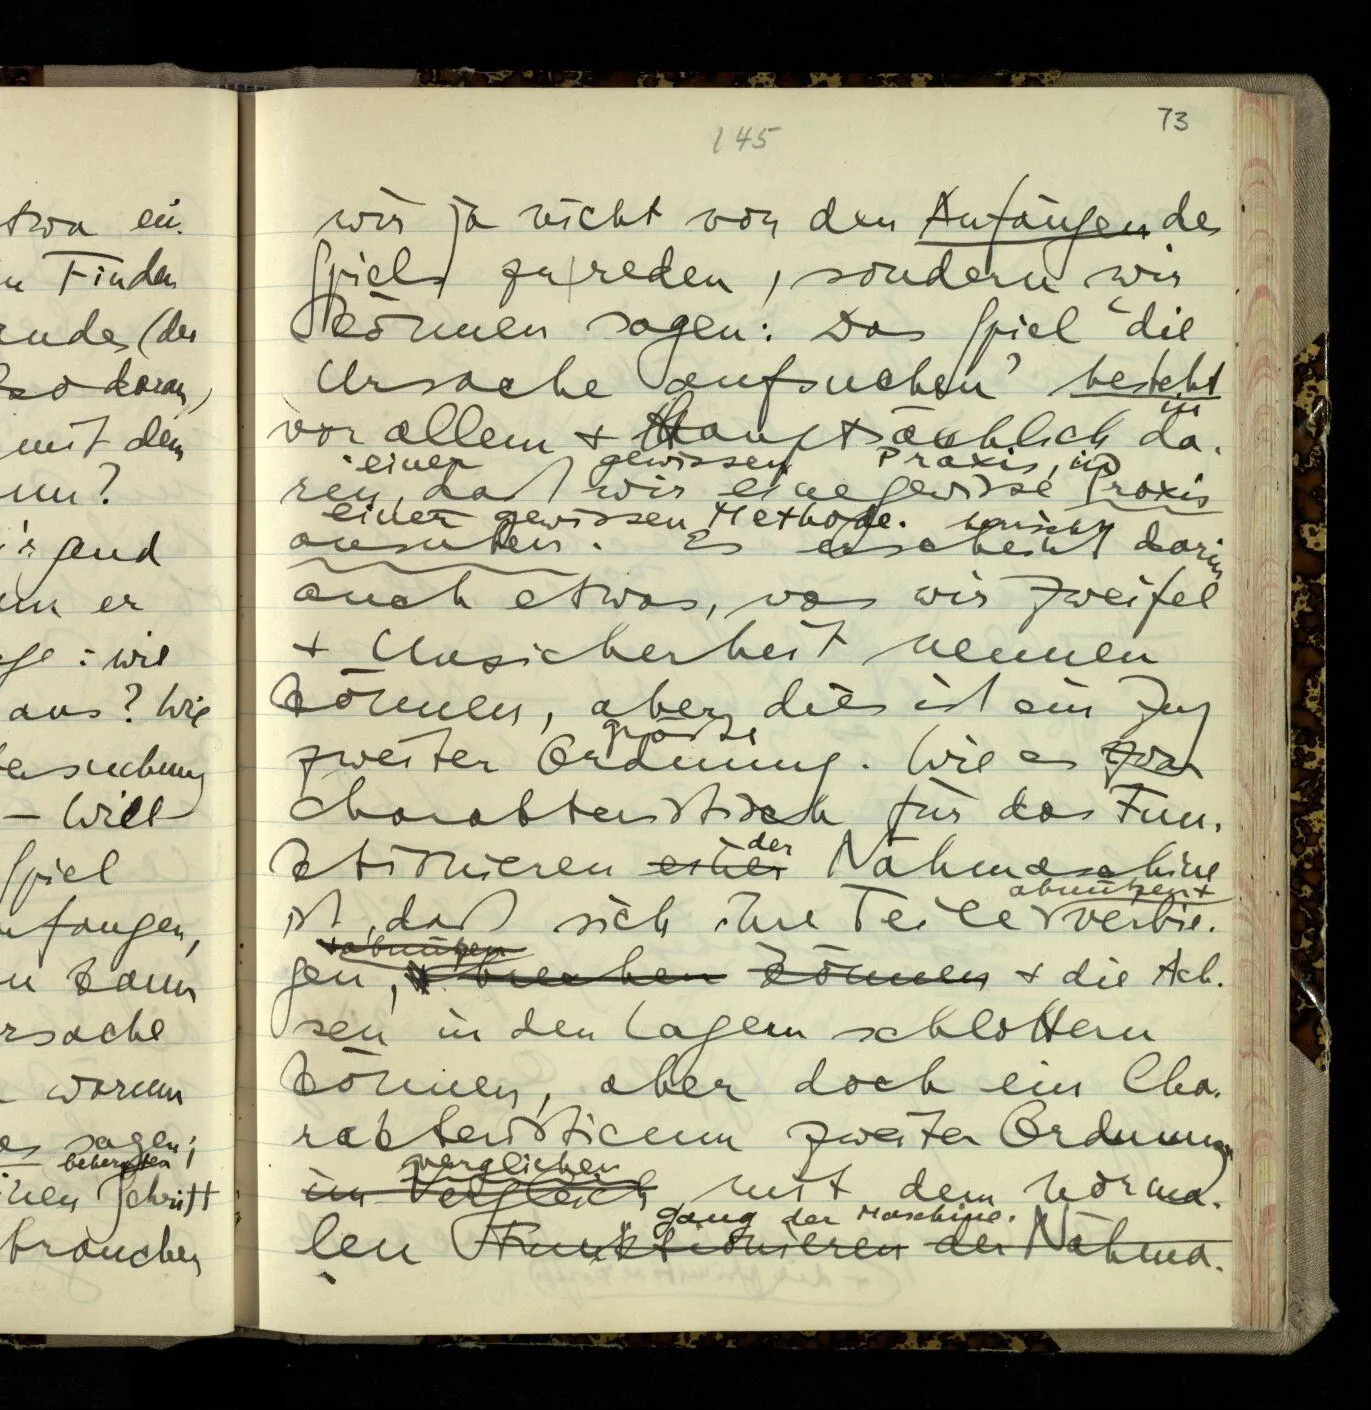 twa ein
n Finden
ande, (der
so daran,
mit dem
nn?
und
nn er
ge: wie
aus? Wie
tersuchung
– Will
Spiel
nfangen,
n kann
rsache
warum
es sagen;
beherzten
inen Schritt
brauchen
73
145
wir ja nicht von den Anfängen des
Spiels zu reden, sondern wir
können sagen: Das Spiel “die
Ursache aufsuchen” besteht
in
vor allem + hauptsächlich da-
einer gewissen Praxis, in
rin, daß wir eine gewisse Praxis
einer gewissen Methode. herrscht
ausüben. Es erscheint darin
auch etwas, was wir Zweifel
+ Unsicherheit nennen
können, aber dies ist ein Zug
zweiter Ordnung. Wie es zwar
charakteristisch für das Fun-
der
ktionieren einer Nähmaschine
abnützen +
ist, daß sich ihre Teile verbie-
+ abnützen
gen, brechen können + die Ach-
sen in den Lagern schlottern
können, aber doch ein Cha-
rakteristicum zweiter Ordnung
verglichen
im Vergleich mit dem norma-
gang der Maschine.
len Funktionieren der Nähma-